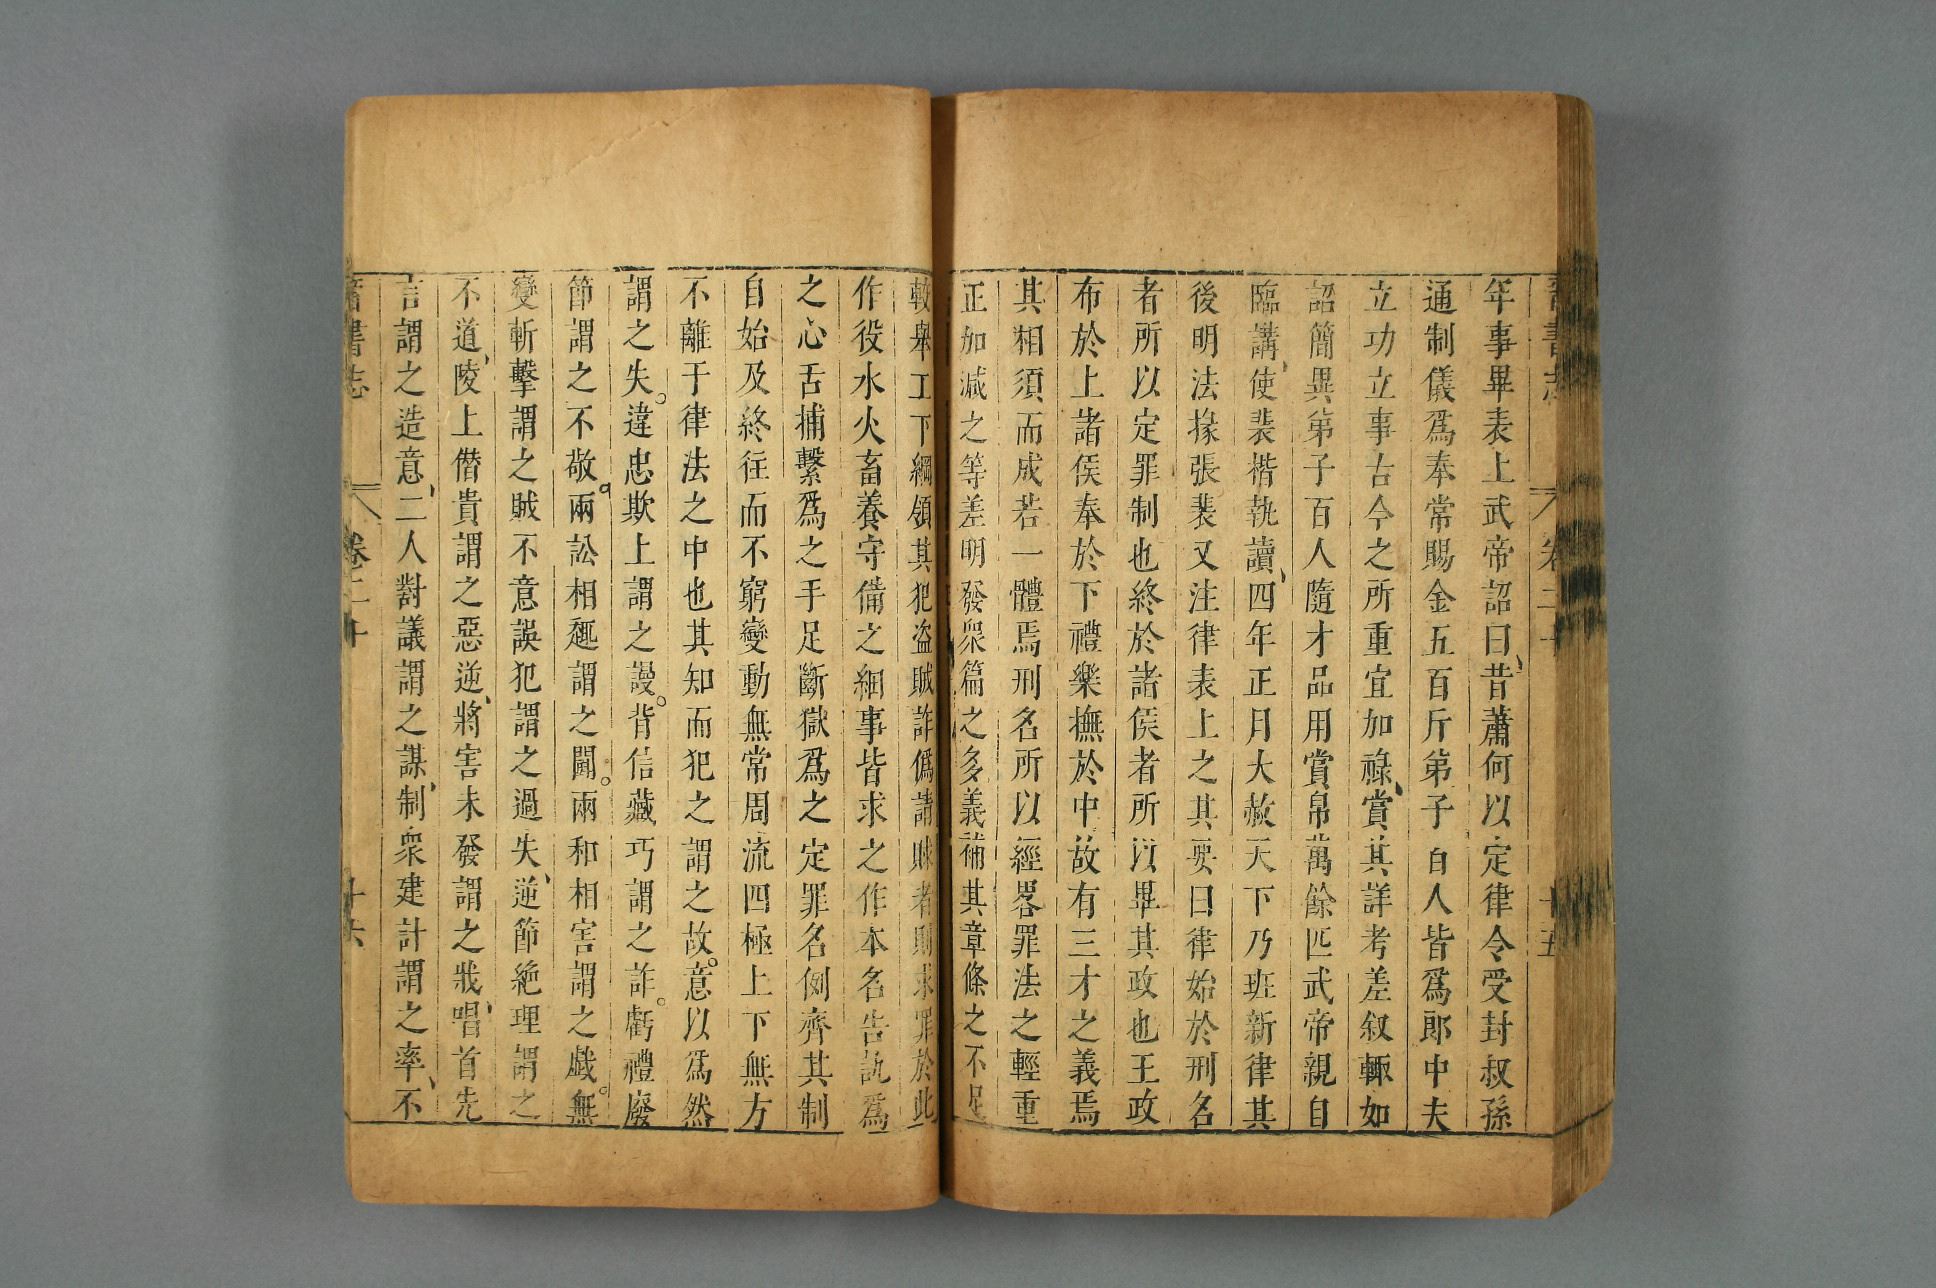 晉書志 卷三十 十五
年事畢表上武帝詔曰昔蕭何以定律令受封叔孫
通制儀爲奉常賜金五百斤弟子百人皆爲郎中夫
立功立事古今之所重宜加祿賞其詳考差叙輒如
詔簡異弟子百人隨才品用賞帛萬餘匹武帝親自
臨講使裴楷執讀四年正月大赦天下乃班新律其
後明法掾張裴又注律表上之其要曰律始於刑名
者所以定罪制也終於諸侯者所以畢其政也王政
布於上諸侯奉於下禮樂撫於中故有三才之義焉
其相須而成若一體焉刑名所以經畧罪法之輕重
正加減之等差明發衆篇之多義補其章條之不足
較舉上下綱領其犯盜賊詐僞請賕者則求罪於此
作役水火畜養守備之細事皆求之作本名告訊爲
之心舌捕繫爲之手足斷獄爲之定罪名例齊其制
自始及終往而不窮變動無常周流四極上下無方
不離于律法之中也其知而犯之謂之故意以爲然
謂之失違忠欺上謂之謾背信藏巧謂之詐虧禮廢
節謂之不敬兩訟相趣謂之鬭兩和相害謂之戲無
變斬擊謂之賊不意誤犯謂之過失逆節絶理謂之
不道陵上僭貴謂之惡逆將害未發謂之戕唱首先
言謂之造意二人對議謂之謀制衆建計謂之率不
晉書志 卷三十 十六